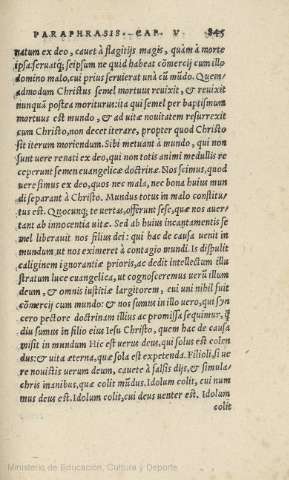 PARAPHRASIS. CAP. V 845
natum ex deo, cauet à flagitijs magis, quàm à morte
ipsa, seruatq; seipsum ne quid habeat cõmercij cum illo
domino malo, cui prius seruierat unà cũ mũdo. Quem
admodum Christus semel mortuus reuixit, & reuixit
nunquã postea moriturus: ita qui semel per baptismum
mortuus est mundo, & ad uitæ nouitatem resurrexit
cum Christo, non decet iterare, propter quod Christo
sit iterum moriendum. Sibi metuant à mundo, qui non
sunt uere renati ex deo, qui non totis animi medullis re
ceperunt semen euangelicæ doctrinæ. Nos scimus, quod
uere simus ex deo, quos nec mala, nec bona huius mun
di separant à Christo. Mundus totus in malo constitu
tus est. Quocunq; te uertas, offerunt sese, quæ nos auer-
tant ab innocentia uitæ. Sed ab huius incantamentis se
mel liberauit nos filius dei: qui hac de causa uenit in
mundum, ut nos eximeret à contagio mundi. Is dispulit
caliginem ignorantiæ prioris, ac dedit intellectum illu
stratum luce euangelica, ut cognosceremus uerũ illum
deum, & omnis iustitiæ largitorem, cui uni nihil fuit
cõmercij cum mundo: & nos sumus in illo uero, qui syn
cero pectore doctrinam illius ac promissa sequimur, 
diu sumus in filio eius Iesu Christo, quem hac de causa
misit in mundum Hic est uerus deus, qui solus est colen
dus: & uita æterna, quæ sola est expetenda. Filioli, si ue
re nouistis uerum deum, cauete à falsis dijs, & simula-
chris inanibus, quæ colit mũdus. Idolum colit, cui num
mus deus est. Idolum colit, cui deus uenter est. Idolum
colit
Ministerio de Educación, Cultura y Deporte